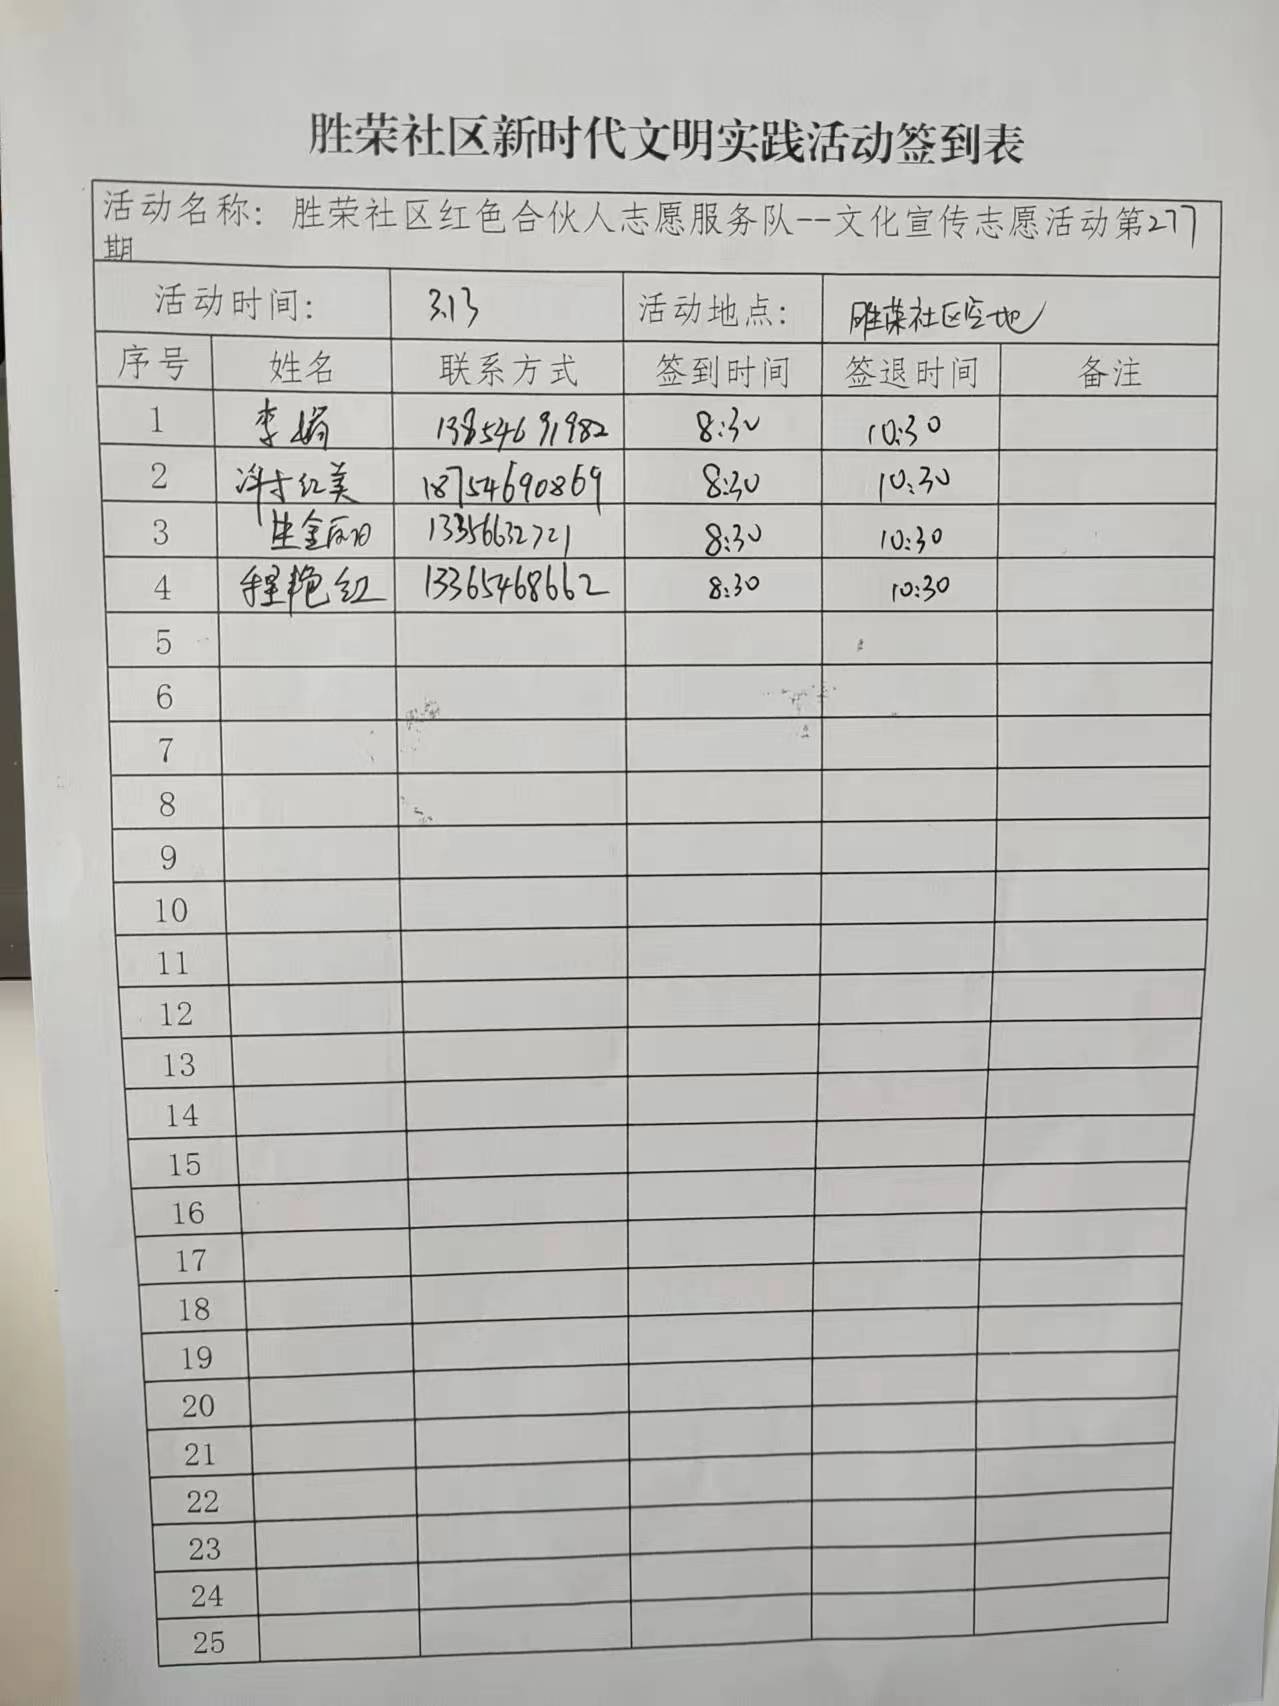 胜荣社区新时代文明实践活动签到表
活动名称：胜荣社区红色合伙人志愿服务队--文化宣传志愿活动第277
期
活动时间： 3.13 活动地点： 胜荣社区空地
序号 姓名 联系方式 签到时间 签退时间 备注
1 李娟 13854691982 8:30 10:30
2 红美 18754690869 8:30 10:30
3 13356632721 8:30 10:30
4 程艳红 13365468662 8:30 10:30
5
6
7
8
9
10
11
12
13
14
15
16
17
18
19
20
21
22
23
24
25